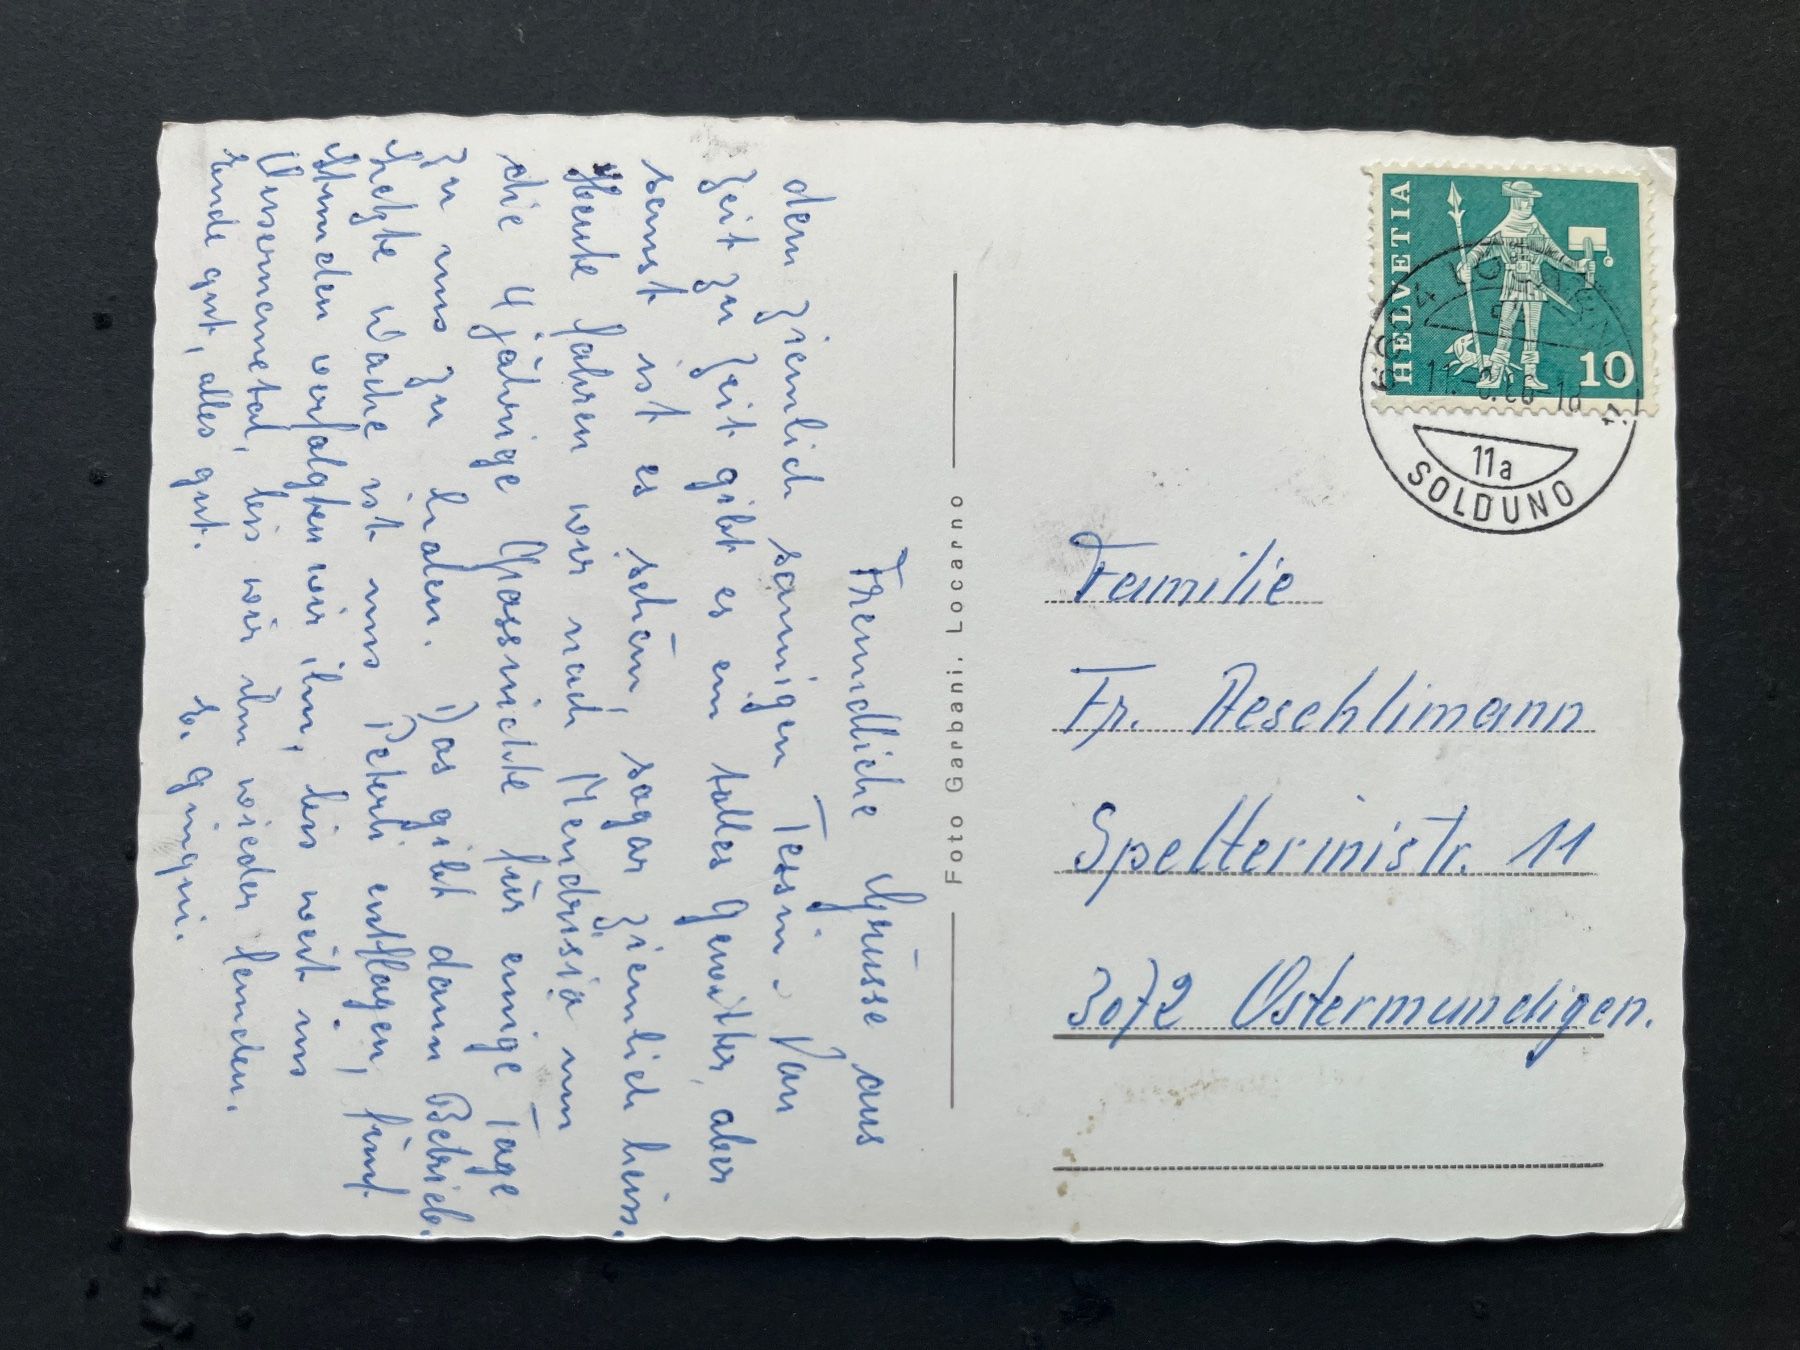 Freundliche Grüsse aus
dem ziemlich sonnigen Tessin. Von
Zeit zu Zeit gibt es ein tolles Gewitter, aber
sonst ist es schön, sogar ziemlich heiss.
Heute fahren wir nach Mendrisio um
die 4 jährige Grossnichte für einige Tage
zu uns zu holen. Das gibt dann Betrieb.
Letzte Woche ist uns Peterli entflogen, fünf
Stunden verfolgten wir ihn, bis weit ins
bis wir ihn wieder fanden.
Ende gut, alles gut.
Foto Garbani, Locarno
HELVETIA
10
11a
SOLDUNO
Familie
Fr. Aeschlimann
Spelterinistr. 11
3072 Ostermundigen.